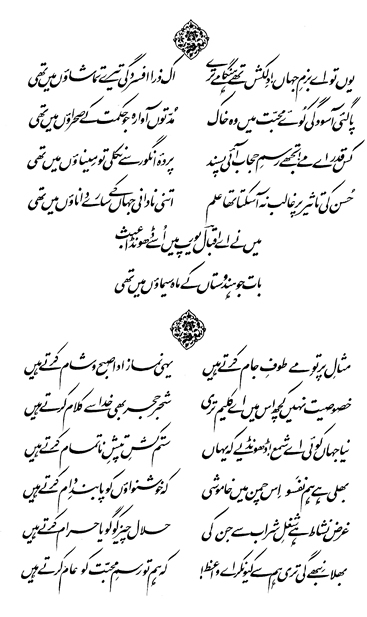 یوں تو اے بزمِ جہاں! دلکش تھے ہنگامے ترے اک ذرا افسردگی تیرے تماشاؤں میں تھی
پا گئی آسودگی کوئے محبت میں وہ خاک مدتوں آوارہ جو حکمت کے صحراؤں میں تھی
کس قدر اے مے! تجھے رسمِ حجاب آئی پسند پردۂ انگور سے نکلی تو میناؤں میں تھی
حسن کی تاثیر پر غالب نہ آ سکتا تھا علم اتنی نادانی جہاں کے سارے داناؤں میں تھی
میں نے اے اقبال یورپ میں اُسے ڈھونڈا عبث
بات جو ہندوستاں کے ماہ سیماؤں میں تھی
مثالِ پرتوِ مے طوفِ جام کرتے ہیں یہی نماز ادا صبح و شام کرتے ہیں
خصوصیت نہیں کچھ اس میں اے کلیم تری شجر حجر بھی خدا سے کلام کرتے ہیں
نیا جہاں کوئی اے شمع! ڈھونڈیے کہ یہاں ستم کشِ تپشِ ناتمام کرتے ہیں
بھلی ہے ہم نفسو اس چمن میں خاموشی کہ خوشنواؤں کو پابندِ دام کرتے ہیں
غرض نشاط ہے شغلِ شراب سے جن کی حلال چیز کو گویا حرام کرتے ہیں
بھلا نبھے گی تری ہم سے کیونکر اے واعظ! کہ ہم تو رسمِ محبت کو عام کرتے ہیں